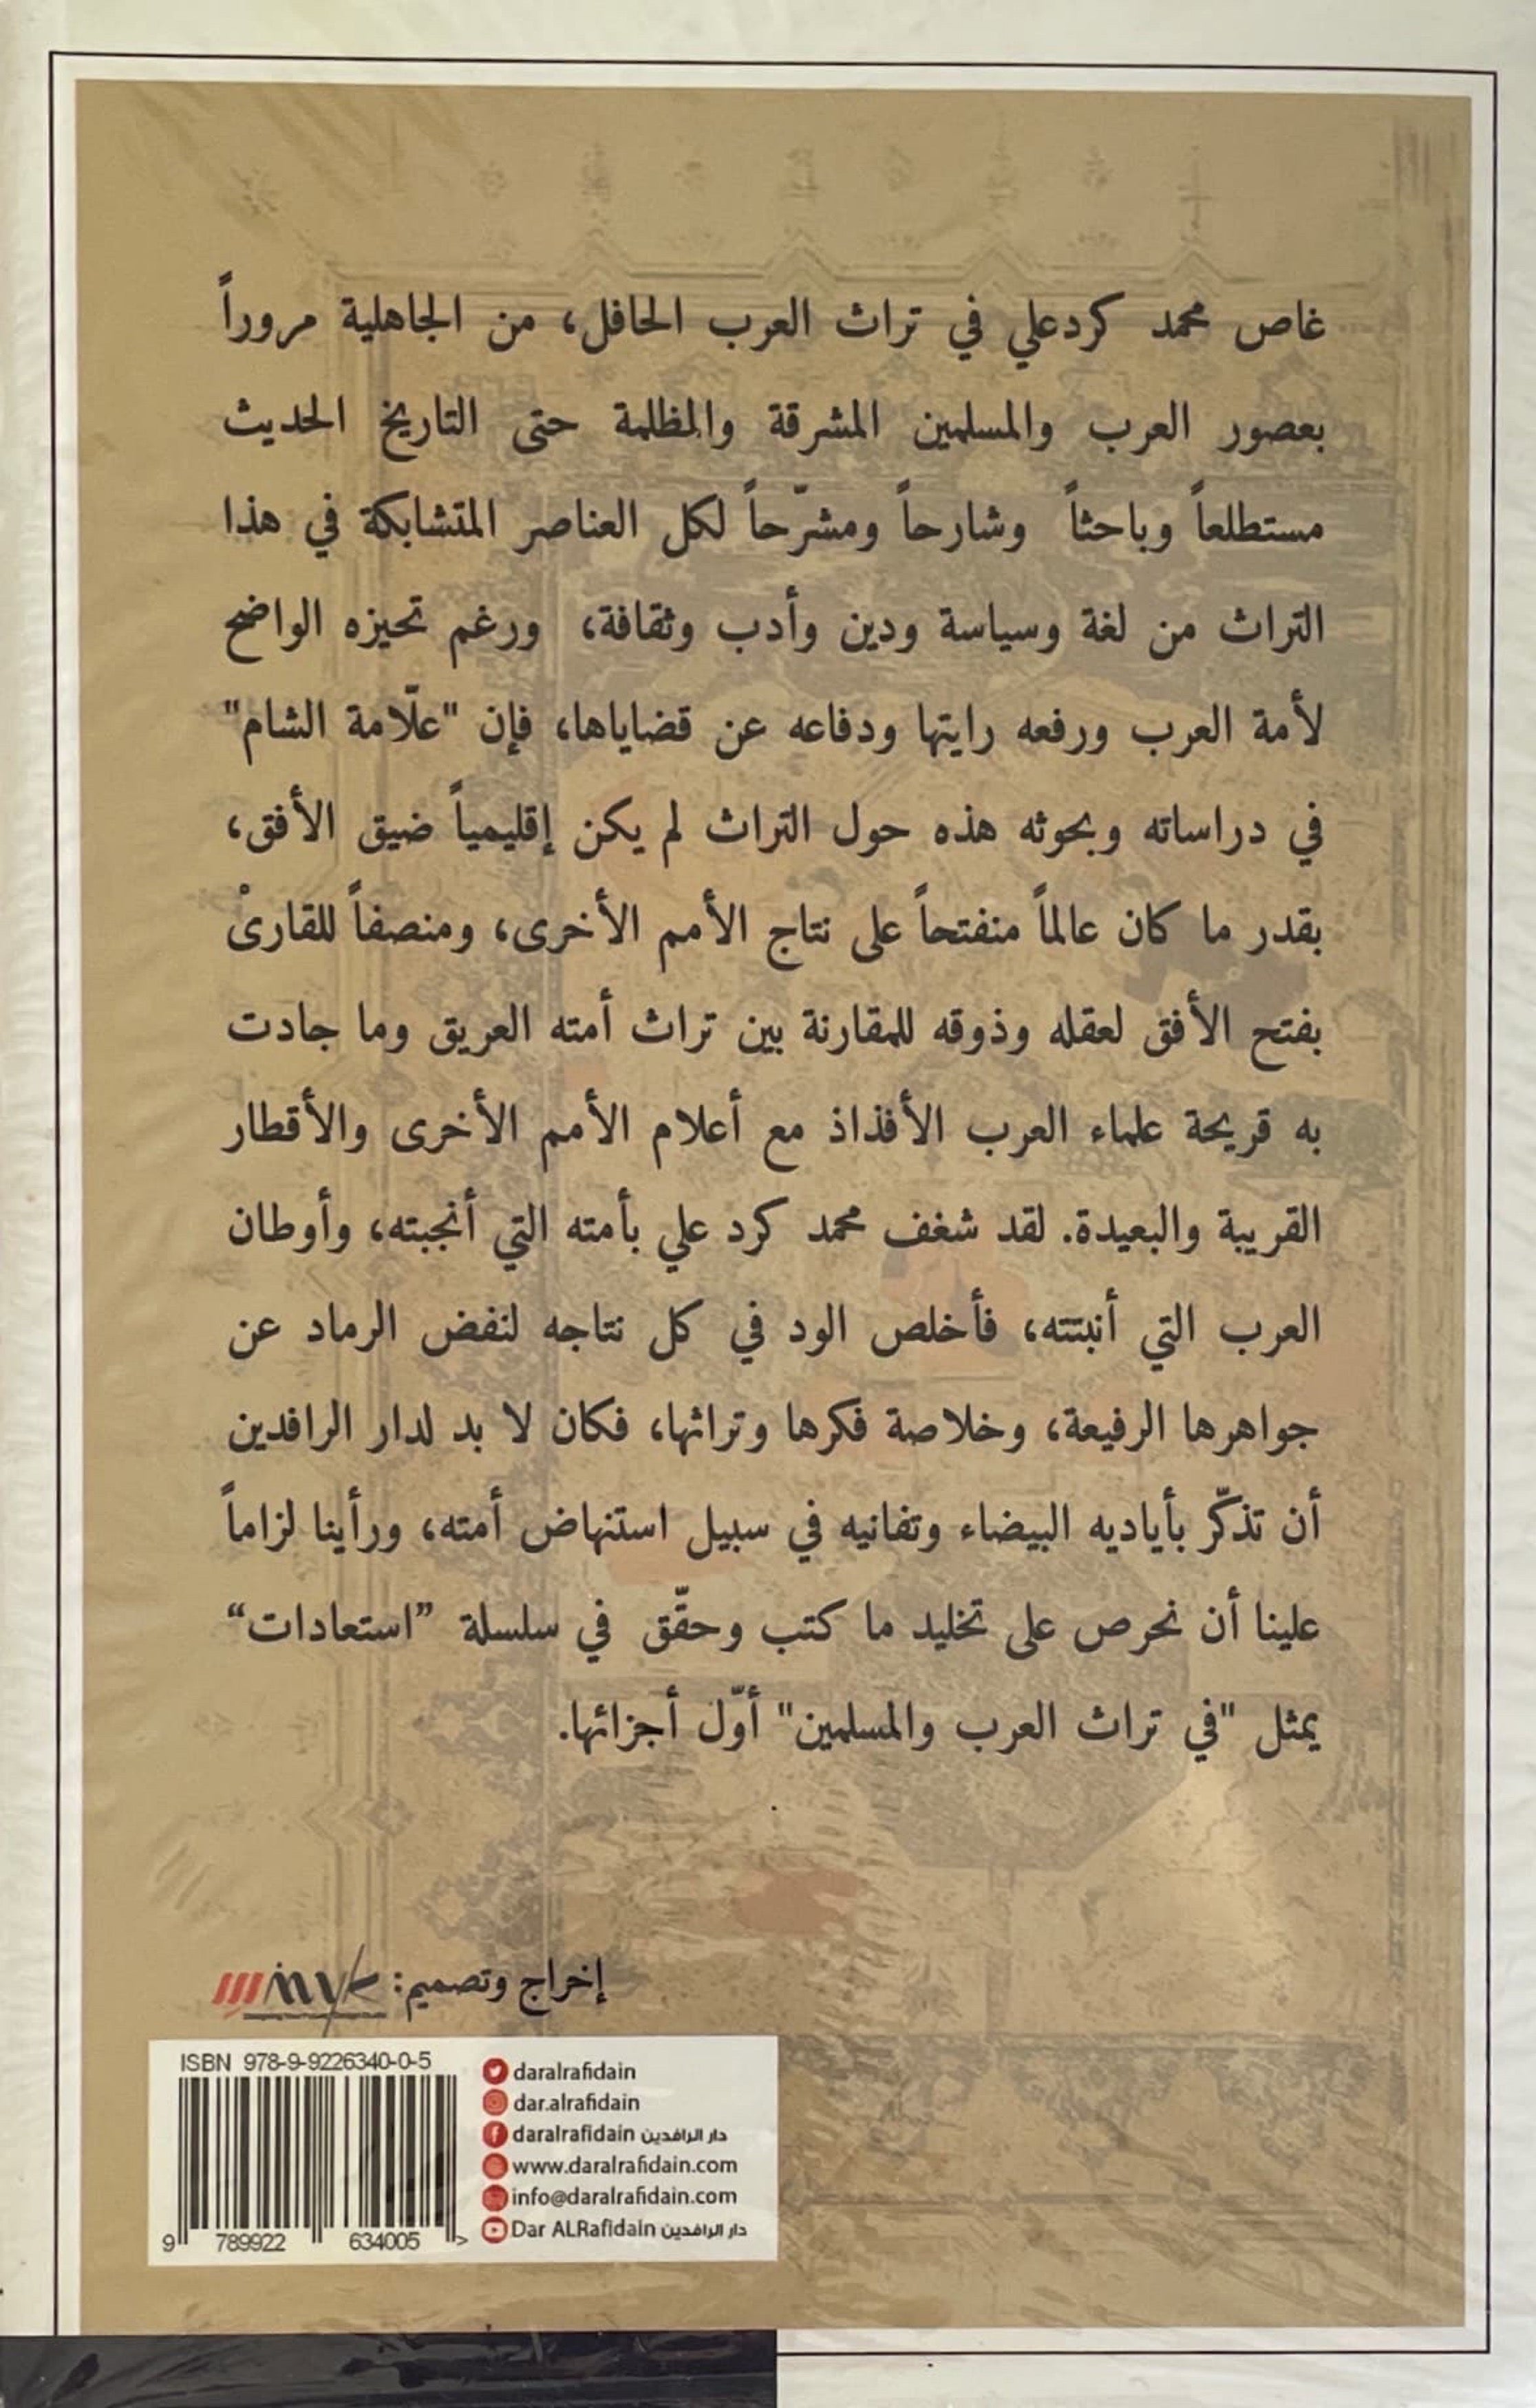 غاص محمد كردعلي في تراث العرب الحافل، من الجاهلية مروراً
بعصور العرب والمسلمين المشرقة والمظلمة حتى التاريخ الحديث
مستطلعاً وباحثاً وشارحاً ومشرّحاً لكل العناصر المتشابكة في هذا
التراث من لغة وسياسة ودين وأدب وثقافة، ورغم تحيزه الواضح
لأمة العرب ورفعه رايتها ودفاعه عن قضاياها، فإن "علّامة الشام"
في دراساته وبحوثه هذه حول التراث لم يكن إقليمياً ضيق الأفق،
بقدر ما كان عالماً منفتحاً على نتاج الأمم الأخرى، ومنصفاً للقارئْ
بفتح الأفق لعقله وذوقه للمقارنة بين تراث أمته العريق وما جادت
به قريحة علماء العرب الأفذاذ مع أعلام الأمم الأخرى والأقطار
القريبة والبعيدة. لقد شغف محمد كرد علي بأمته التي أنجبته، وأوطان
العرب التي أنبتته، فأخلص الود في كل نتاجه لنفض الرماد عن
جواهرها الرفيعة، وخلاصة فكرها وتراثها، فكان لا بد لدار الرافدين
أن تذكّر بأياديه البيضاء وتفانيه في سبيل استنهاض أمته، ورأينا لزاماً
علينا أن نحرص على تخليد ما كتب وحقّق في سلسلة ”استعادات“
يمثل "في تراث العرب والمسلمين" أوّل أجزائها.
إخراج وتصميم:
ISBN 978-9-9226340-0-5
9 789922 634005 >
daralrafidain
dar.alrafidain
daralrafidain دار الرافدين
www.daralrafidain.com
info@daralrafidain.com
Dar ALRafidain دار الرافدين